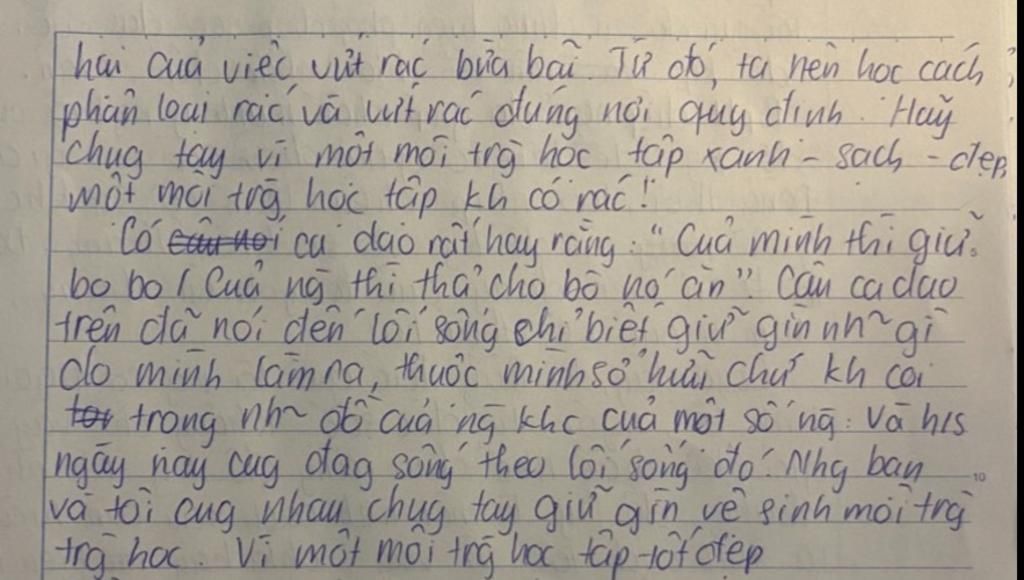 hại của việc vứt rác bừa bãi. Từ đó, ta nên học cách
phân loại rác và vứt rác đúng nơi quy định. Hãy
chug tay vì một môi trg học tập xanh - sạch - đẹp,
một môi trg học tập kh có rác!
Có câu nói ca dao rất hay rằng: "Của mình thì giữ
bo bo / Của ng thì thả cho bò nó ăn". Câu ca dao
trên đã nói đến lối sống chỉ biết giữ gìn nh~ gì
do mình làm ra, thuộc mình sở hữu chứ kh coi
trọng nh~ đồ của ng khc của một số ng. Và h/s
ngày nay cug đag sống theo lối sống đó. Nhg bạn
và tôi cug nhau chug tay giữ gìn vệ sinh môi trg
trg học. Vì một môi trg học tập tốt đẹp
10